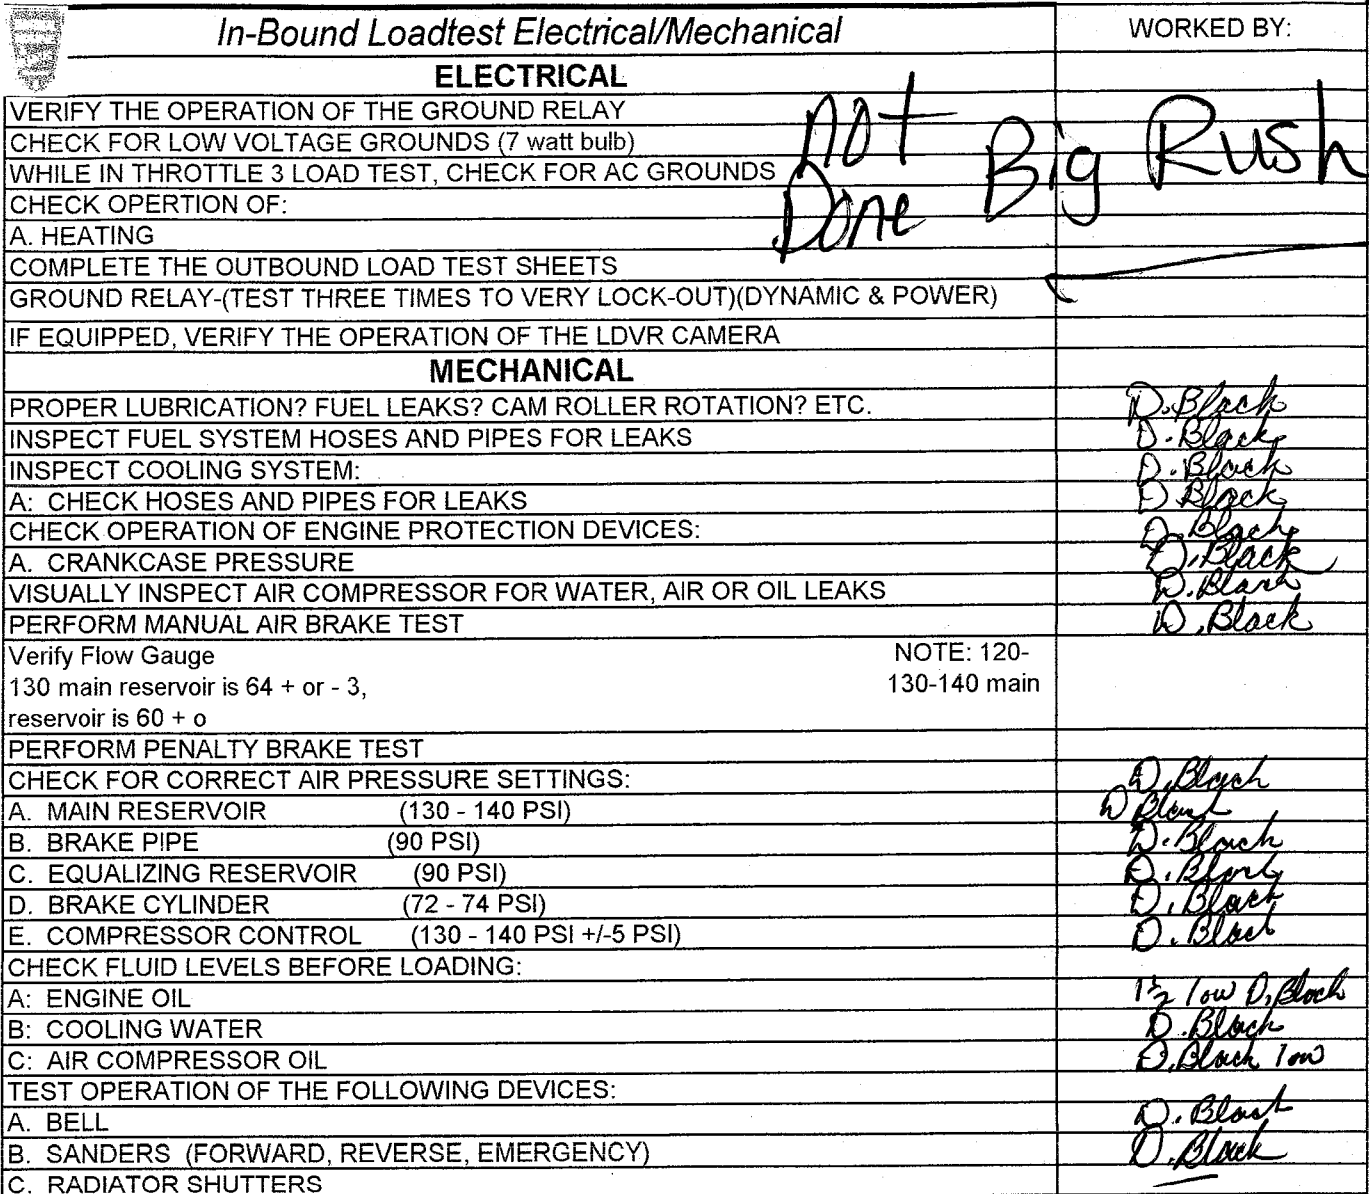 In-Bound Loadtest Electrical/Mechanical WORKED BY:
ELECTRICAL
VERIFY THE OPERATION OF THE GROUND RELAY
CHECK FOR LOW VOLTAGE GROUNDS (7 watt bulb)
WHILE IN THROTTLE 3 LOAD TEST, CHECK FOR AC GROUNDS
not Done Big Rush
CHECK OPERTION OF:
A. HEATING
COMPLETE THE OUTBOUND LOAD TEST SHEETS
GROUND RELAY-(TEST THREE TIMES TO VERY LOCK-OUT)(DYNAMIC & POWER)
IF EQUIPPED, VERIFY THE OPERATION OF THE LDVR CAMERA
MECHANICAL
PROPER LUBRICATION? FUEL LEAKS? CAM ROLLER ROTATION? ETC. D. Black
INSPECT FUEL SYSTEM HOSES AND PIPES FOR LEAKS D. Black
INSPECT COOLING SYSTEM: D. Black
A: CHECK HOSES AND PIPES FOR LEAKS D Black
CHECK OPERATION OF ENGINE PROTECTION DEVICES: D. Black
A. CRANKCASE PRESSURE D. Black
VISUALLY INSPECT AIR COMPRESSOR FOR WATER, AIR OR OIL LEAKS D. Black
PERFORM MANUAL AIR BRAKE TEST D. Black
Verify Flow Gauge NOTE: 120-
130 main reservoir is 64 + or - 3, 130-140 main
reservoir is 60 + o
PERFORM PENALTY BRAKE TEST
CHECK FOR CORRECT AIR PRESSURE SETTINGS: D. Black
A. MAIN RESERVOIR (130 - 140 PSI) D Black
B. BRAKE PIPE (90 PSI) D. Black
C. EQUALIZING RESERVOIR (90 PSI) D. Black
D. BRAKE CYLINDER (72 - 74 PSI) D. Black
E. COMPRESSOR CONTROL (130 - 140 PSI +/-5 PSI) D. Black
CHECK FLUID LEVELS BEFORE LOADING:
A: ENGINE OIL 1 1/2 low D. Black
B: COOLING WATER D. Black
C: AIR COMPRESSOR OIL D. Black low
TEST OPERATION OF THE FOLLOWING DEVICES:
A. BELL D. Black
B. SANDERS (FORWARD, REVERSE, EMERGENCY) D. Black
C. RADIATOR SHUTTERS